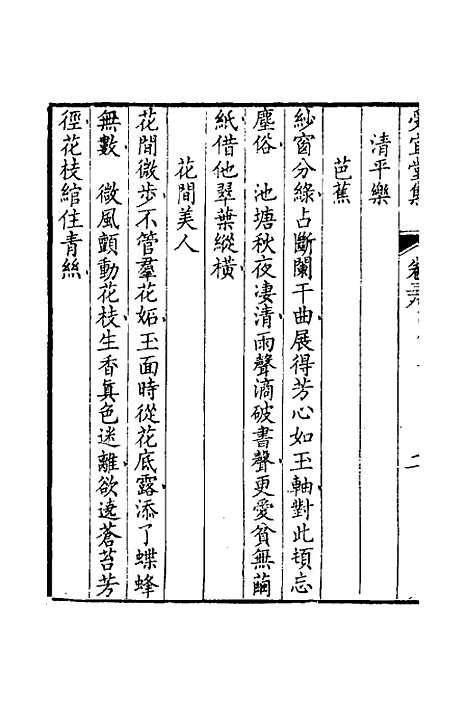 清平樂
芭蕉
紗窗分綠占斷闌干曲展得芳心如玉軸對此頓忘
塵俗　池塘秋夜凄清雨聲滴破書聲更愛貧無繭
紙借他翠葉縱橫
花間美人
花間微步不管羣花妬玉面時從花底露添了蝶蜂
無數　微風顫動花枝生香真色迷離欲遶蒼苔芳
徑花枝綰住青絲